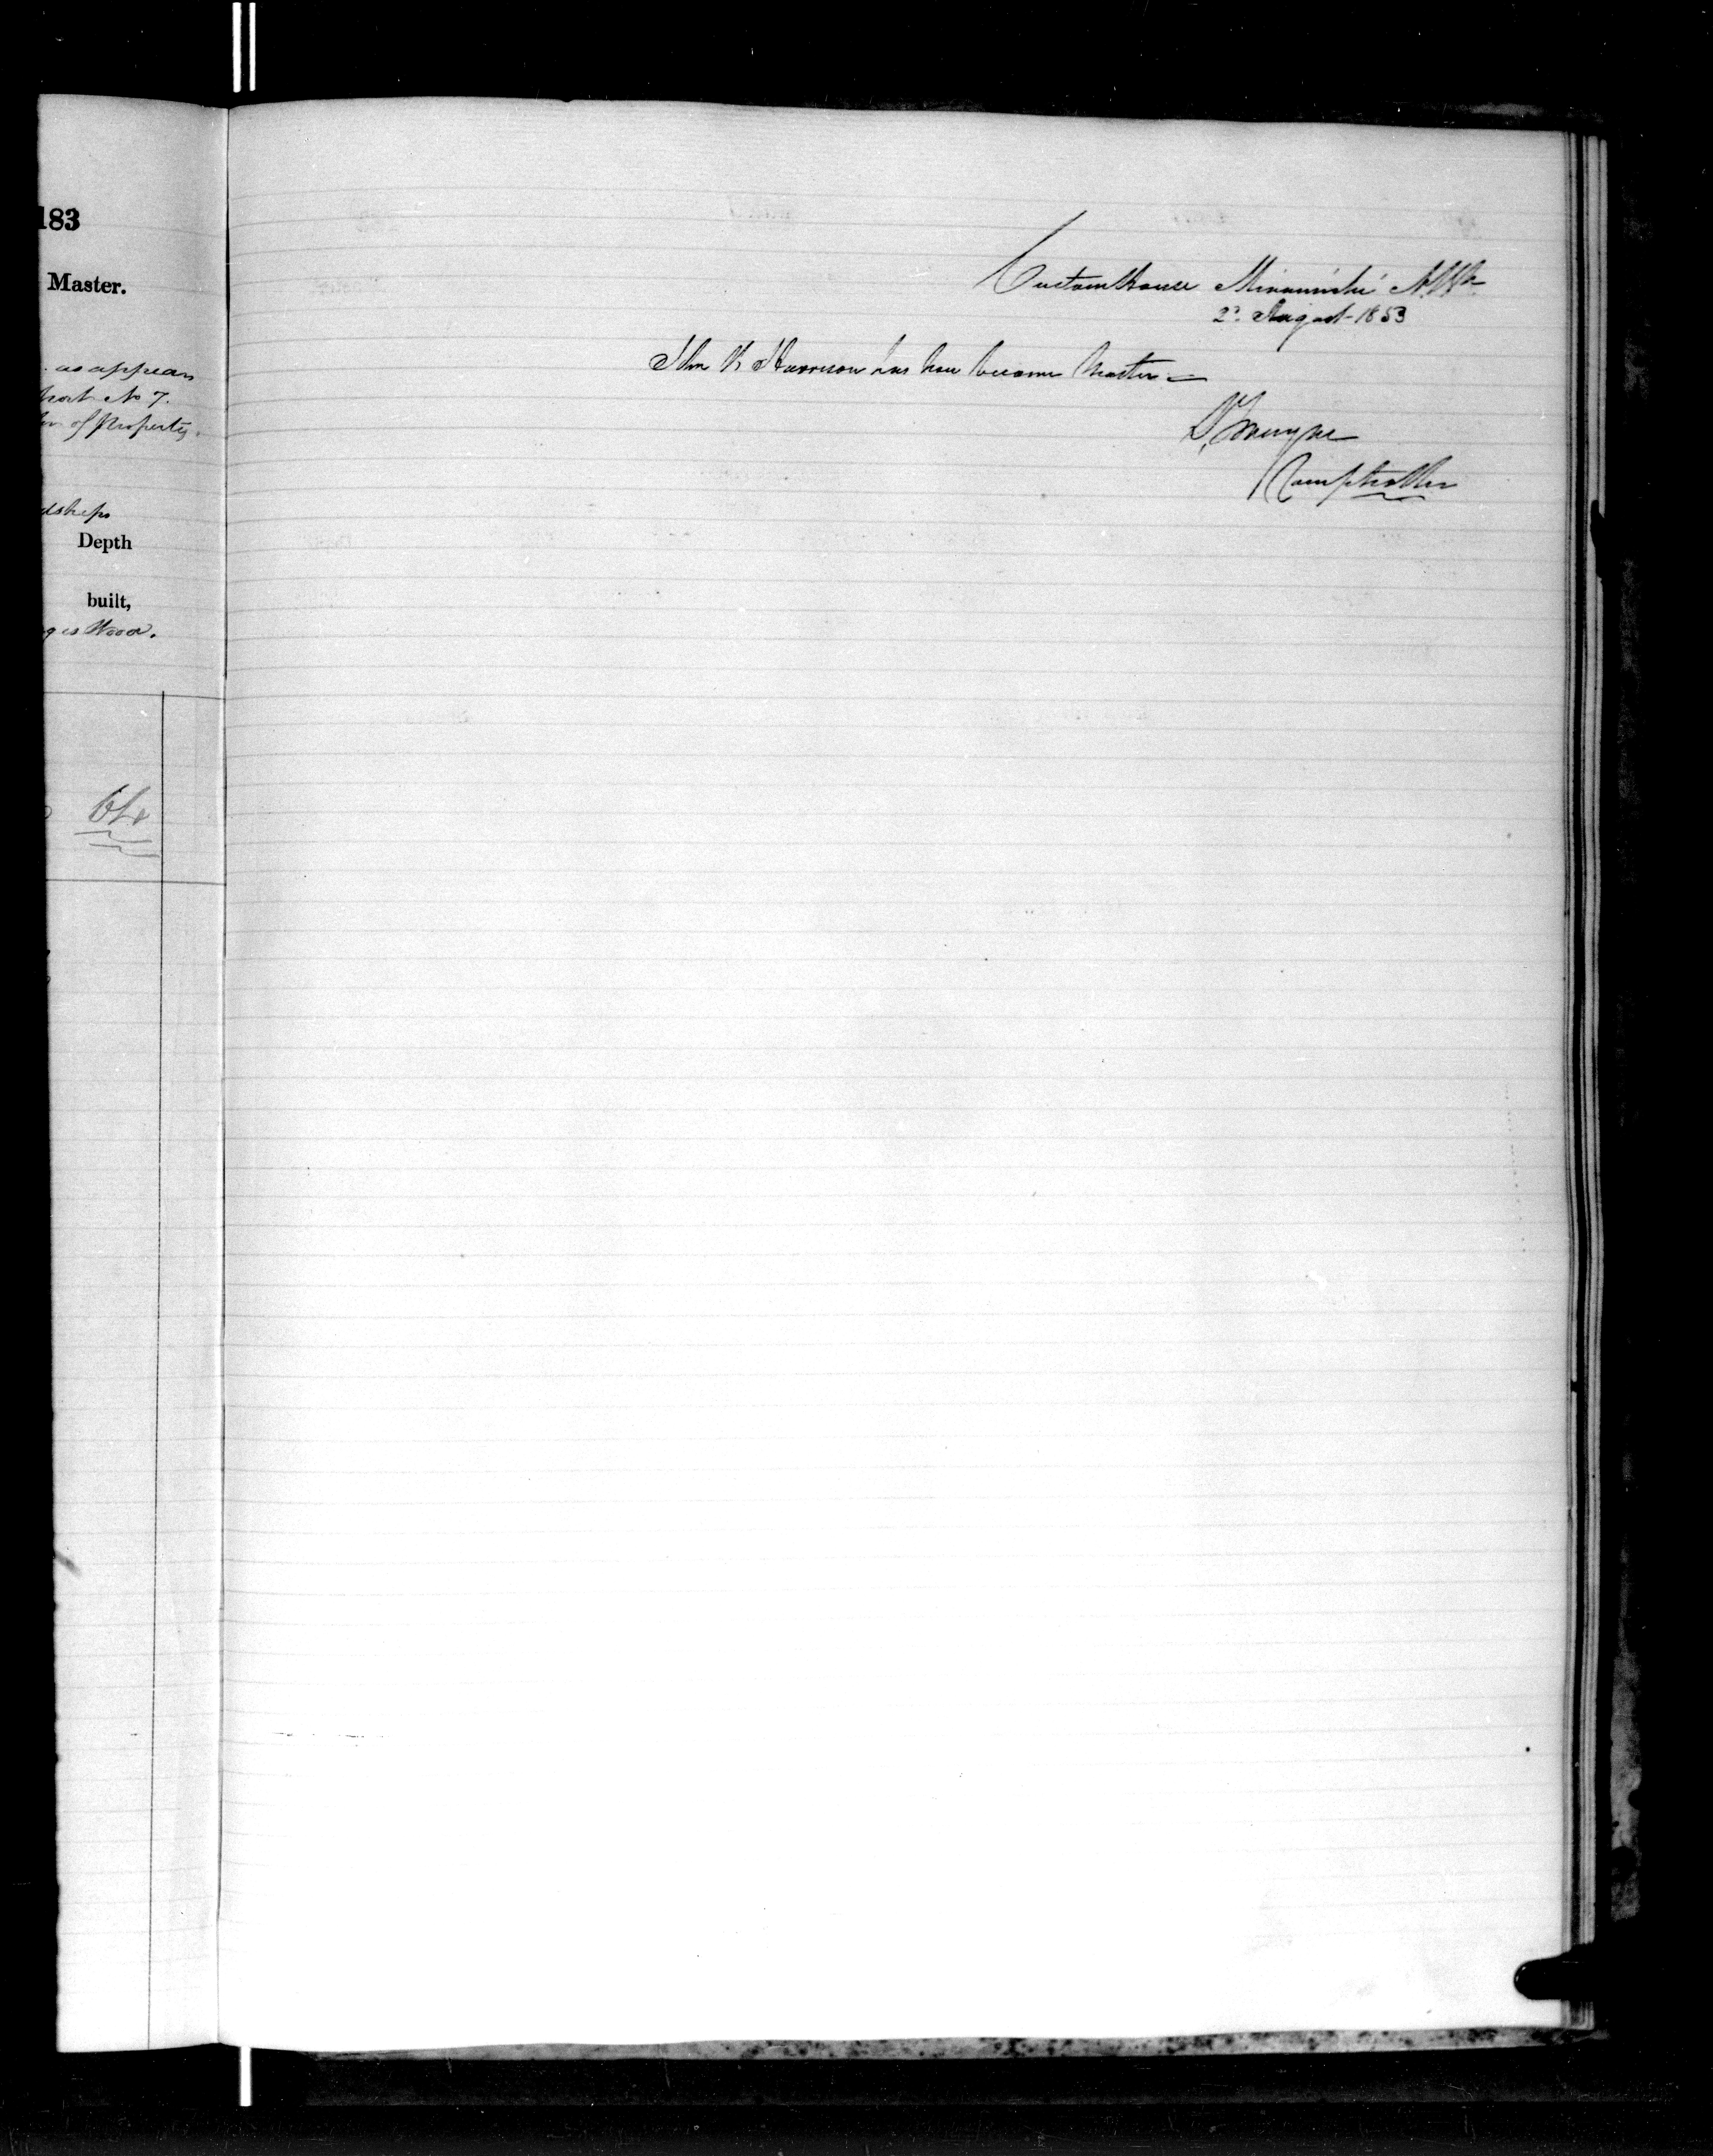 183
Master.
as appears
No 7.
of Property.
Depth
built,
Wood.
64
Custom House Miramichi
2d August 1853
John Harrison has now become Master
Comptroller